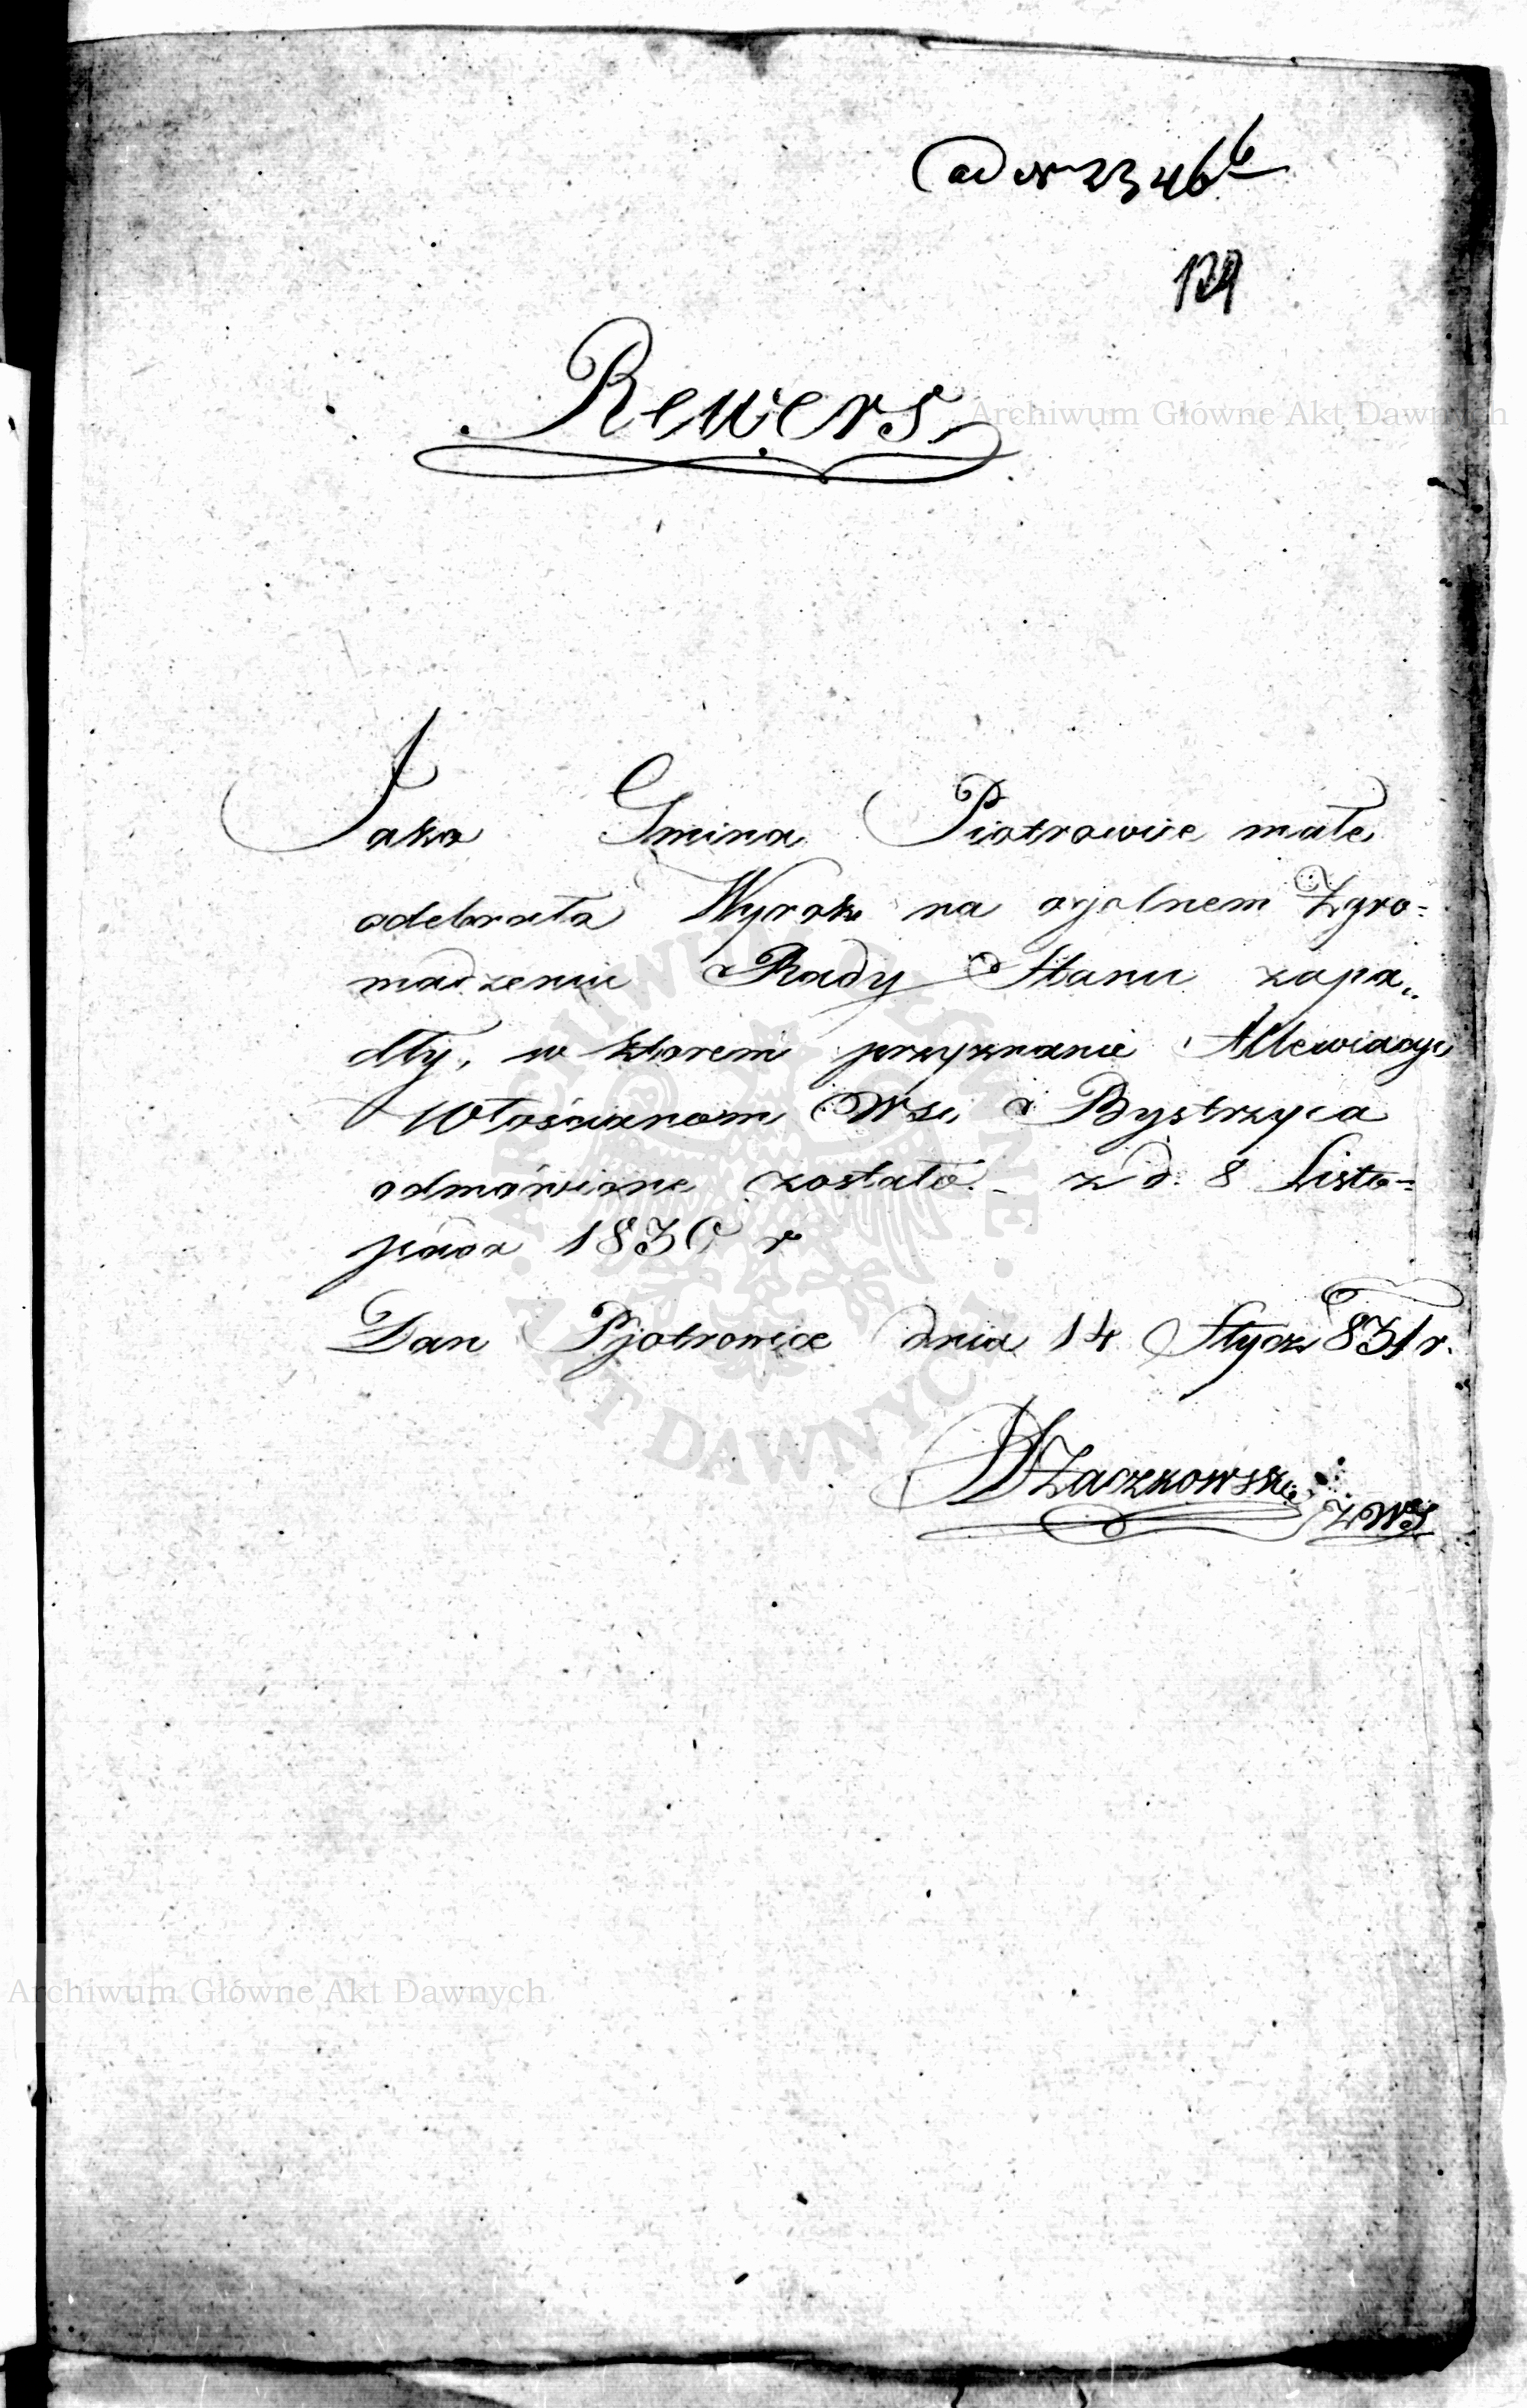 ad N 23466
129
Archiwum Główne Akt Dawnych
Rewers
Jako Gmina Piotrowice małe
odebrała Wyrok na ogolnem Zgro=
madzeniu Rady Stanu zapa„
dły, w ktorem przyznanie Allewiacyi
Włościanom Wsi Bystrzyca
odmówione zostało - z d. 8 Listo=
pada 1830 r
Dan Pjotrowice dnia 14 Stycz 831 r.
Zaczkowski ZWS
ARCHIWUM GŁÓWNE
AKT DAWNYCH
Archiwum Główne Akt Dawnych